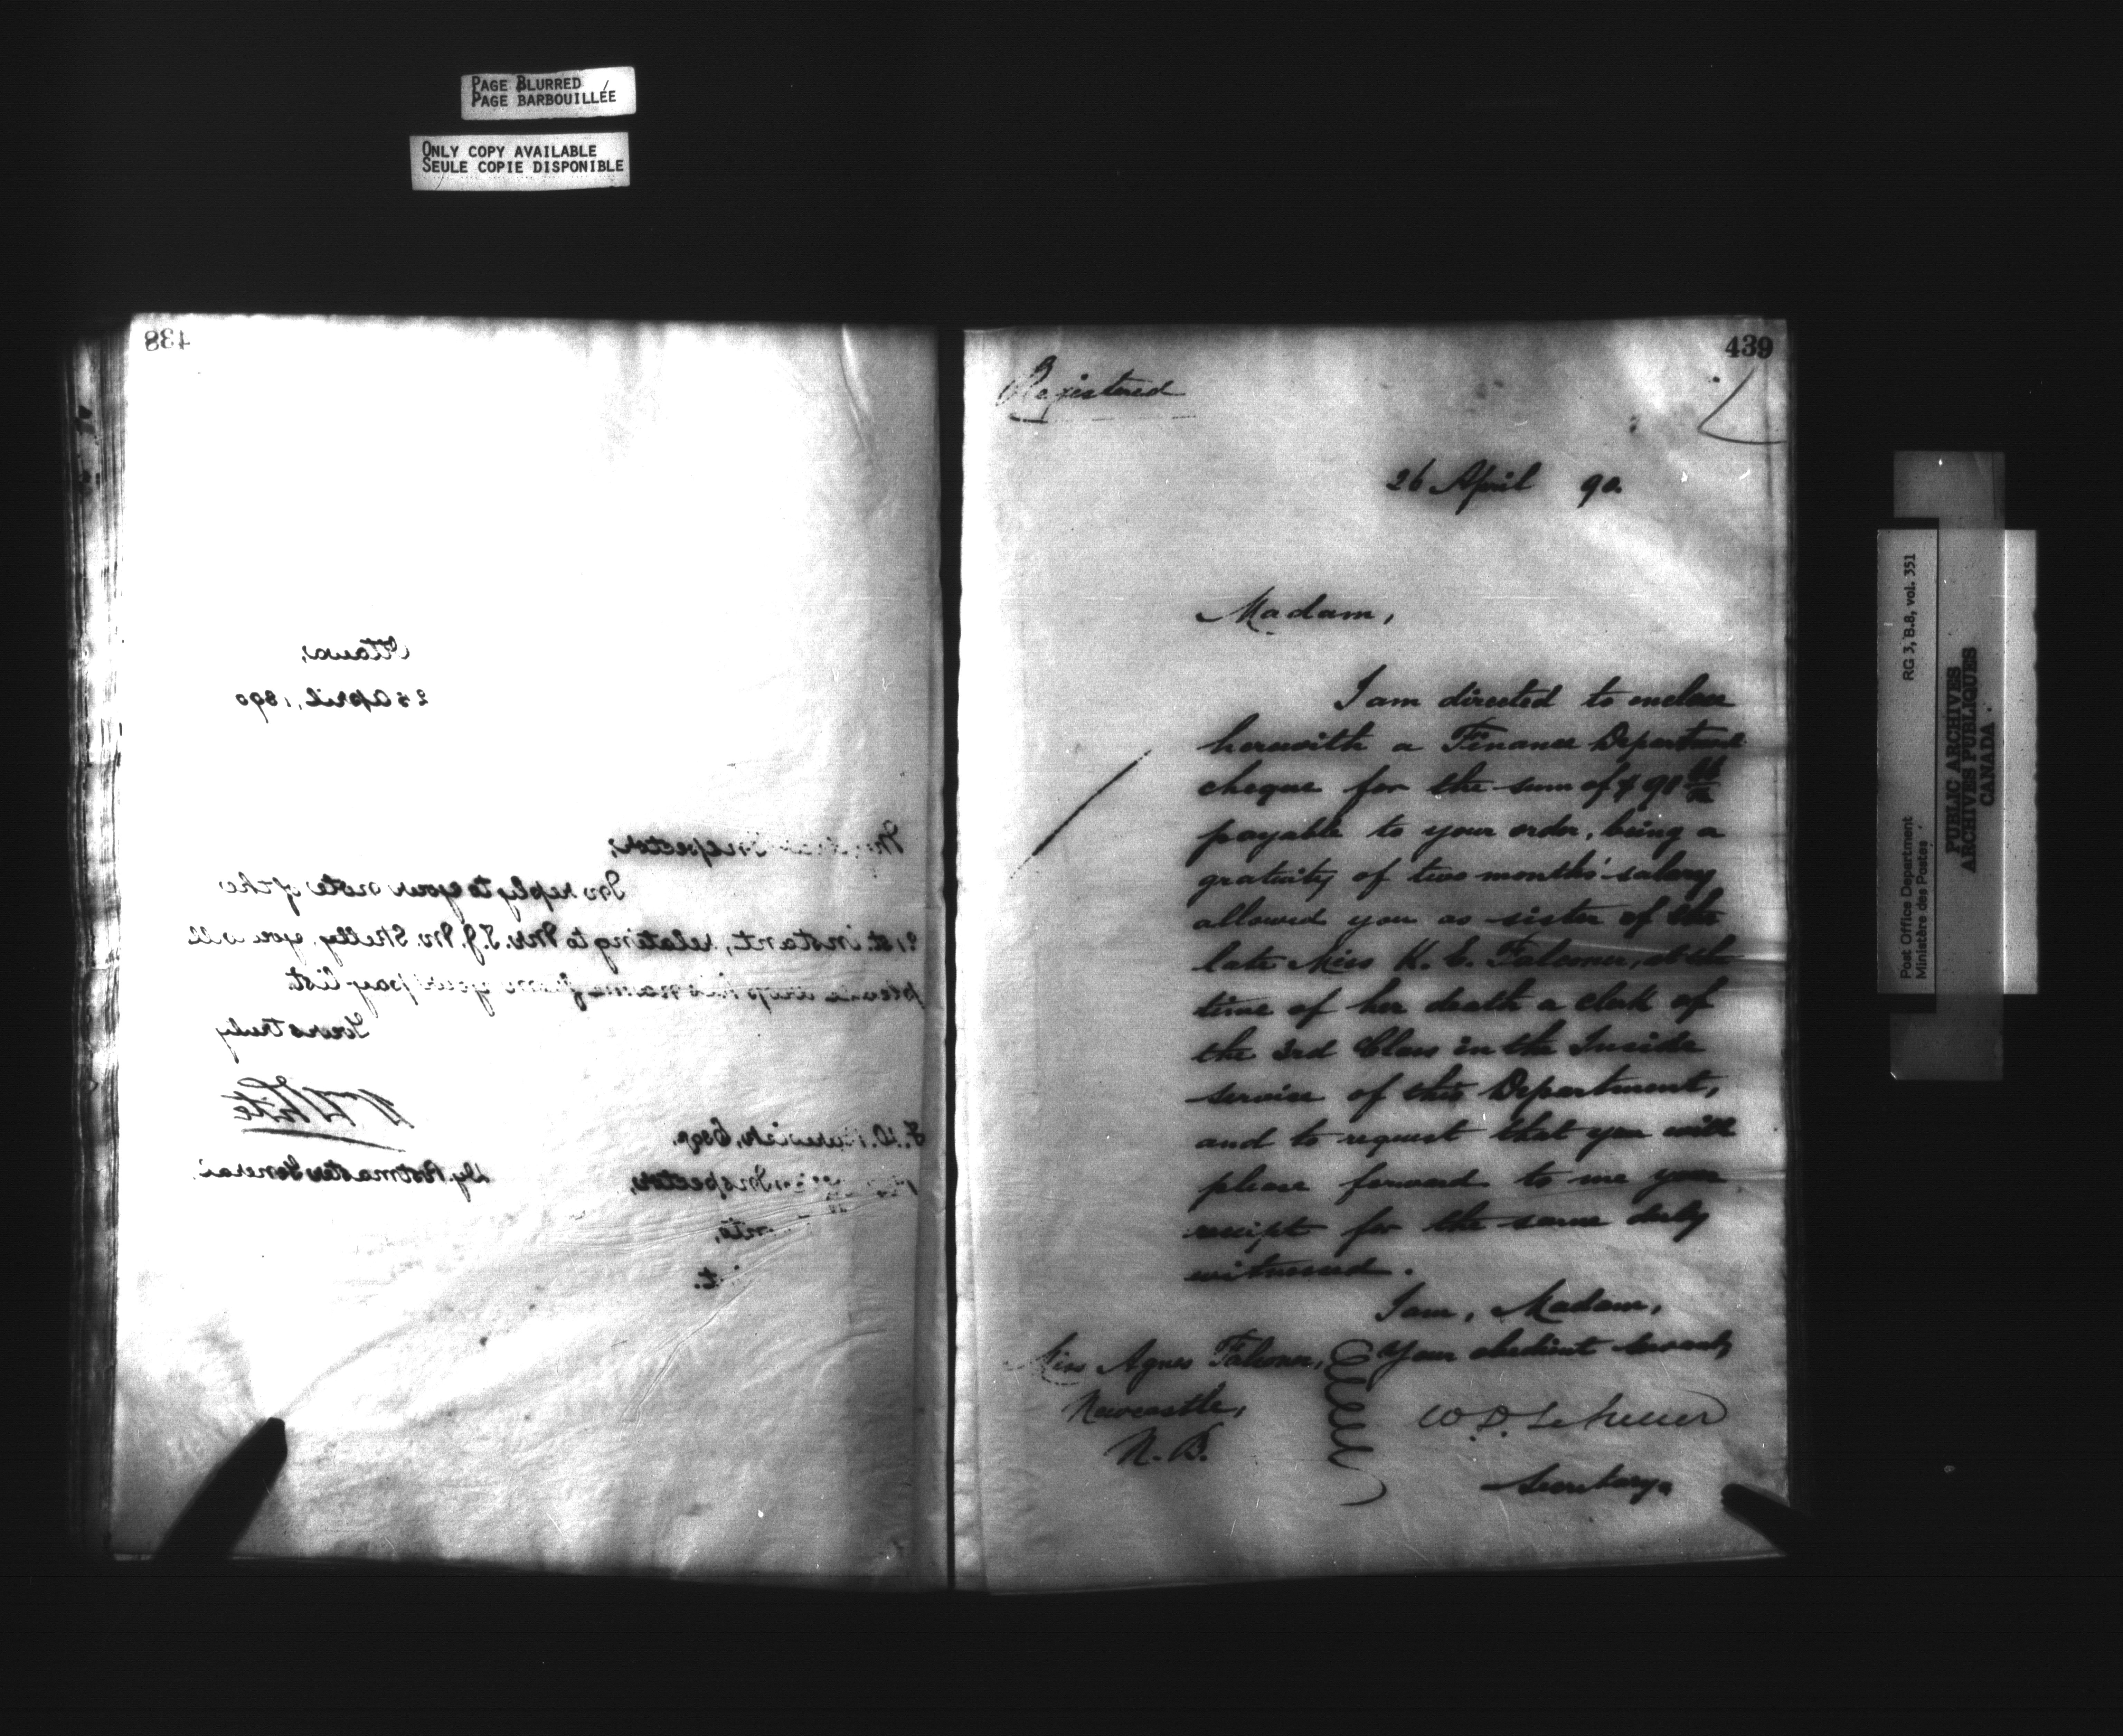 PAGE BLURRED
PAGE BARBOUILLÉE
ONLY COPY AVAILABLE
SEULE COPIE DISPONIBLE
438
Ottawa,
25 April, 1890
Inspector,
In reply to your note of the
21st. instant, relating to Mr. T. J. M. Skelly, you will
please drop his name from your pay list.
Yours truly
Wm White
Dy. Postmaster General.
Esqr.
Inspector,
439
Registered
26 April 90.
Madam,
I am directed to enclose
herewith a Finance Department
cheque for the sum of $ 91
payable to your order, being a
gratuity of two months' salary
allowed you as sister of the
late Miss K. E. Falconer, at the
time of her death a clerk of
the 3rd Class in the Inside
service of this Department,
and to request that you will
please forward to me your
receipt for the same duly
witnessed.
I am, Madam,
Your obedient servant,
Miss Agnes Falconer,
Newcastle,
N. B.
W. D. LeSueur
Secretary.
Post Office Department RG 3, B.8, vol. 351
Ministère des Postes
PUBLIC ARCHIVES
ARCHIVES PUBLIQUES
CANADA